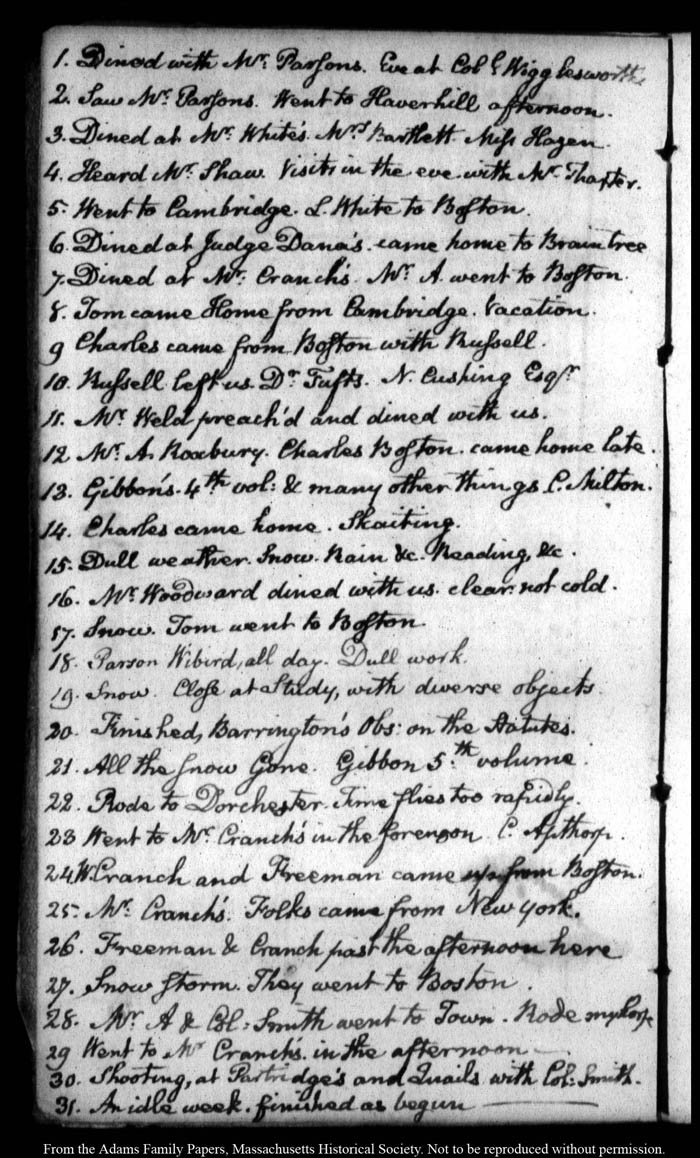 1. Dined with Mr. Parsons. Eve at Col. Wigglesworth's
2. Saw Mr. Parsons. Went to Haverhill afternoon.
3. Dined at Mr. White's. Mrs. Bartlett. Miss Hazen
4. Heard Mr. Shaw. Visits in the eve with Mr. Thaxter.
5. Went to Cambridge. L. White to Boston.
6. Dined at Judge Dana's. came home to Braintree
7. Dined at Mr. Cranch's. Mr. A. went to Boston.
8. Tom came Home from Cambridge. Vacation.
9 Charles came from Boston with Russell.
10. Russell left us. Dr. Tufts. N. Cushing Esqr.
11. Mr. Weld preach'd and dined with us.
12 Mr. A. Roxbury. Charles Boston. came home late.
13. Gibbon's. 4th vol: & many other things. C. Milton.
14. Charles came home. Skaiting.
15. Dull weather. Snow. Rain &c. Reading, &c.
16. Mr. Woodward dined with us. clear. not cold.
17. Snow. Tom went to Boston
18. Parson Wibird, all day. Dull work.
19. Snow. Close at Study, with diverse objects.
20. Finished, Barrington's Obs: on the Statutes.
21. All the snow Gone. Gibbon 5th. volume.
22. Rode to Dorchester. Time flies too rapidly.
23 Went to Mr. Cranch's in the forenoon. C. Apthorp.
24 W. Cranch and Freeman came from Boston.
25. Mr. Cranch's. Folks came from New York.
26. Freeman & Cranch past the afternoon here
27. Snow storm. They went to Boston.
28. Mr A & Col: Smith went to Town. Rode my horse
29 Went to Mr Cranch's. in the afternoon
30. Shooting, at Partridge's and Quails with Col: Smith.
31. An idle week. finished as begun
From the Adams Family Papers, Massachusetts Historical Society. Not to be reproduced without permission.